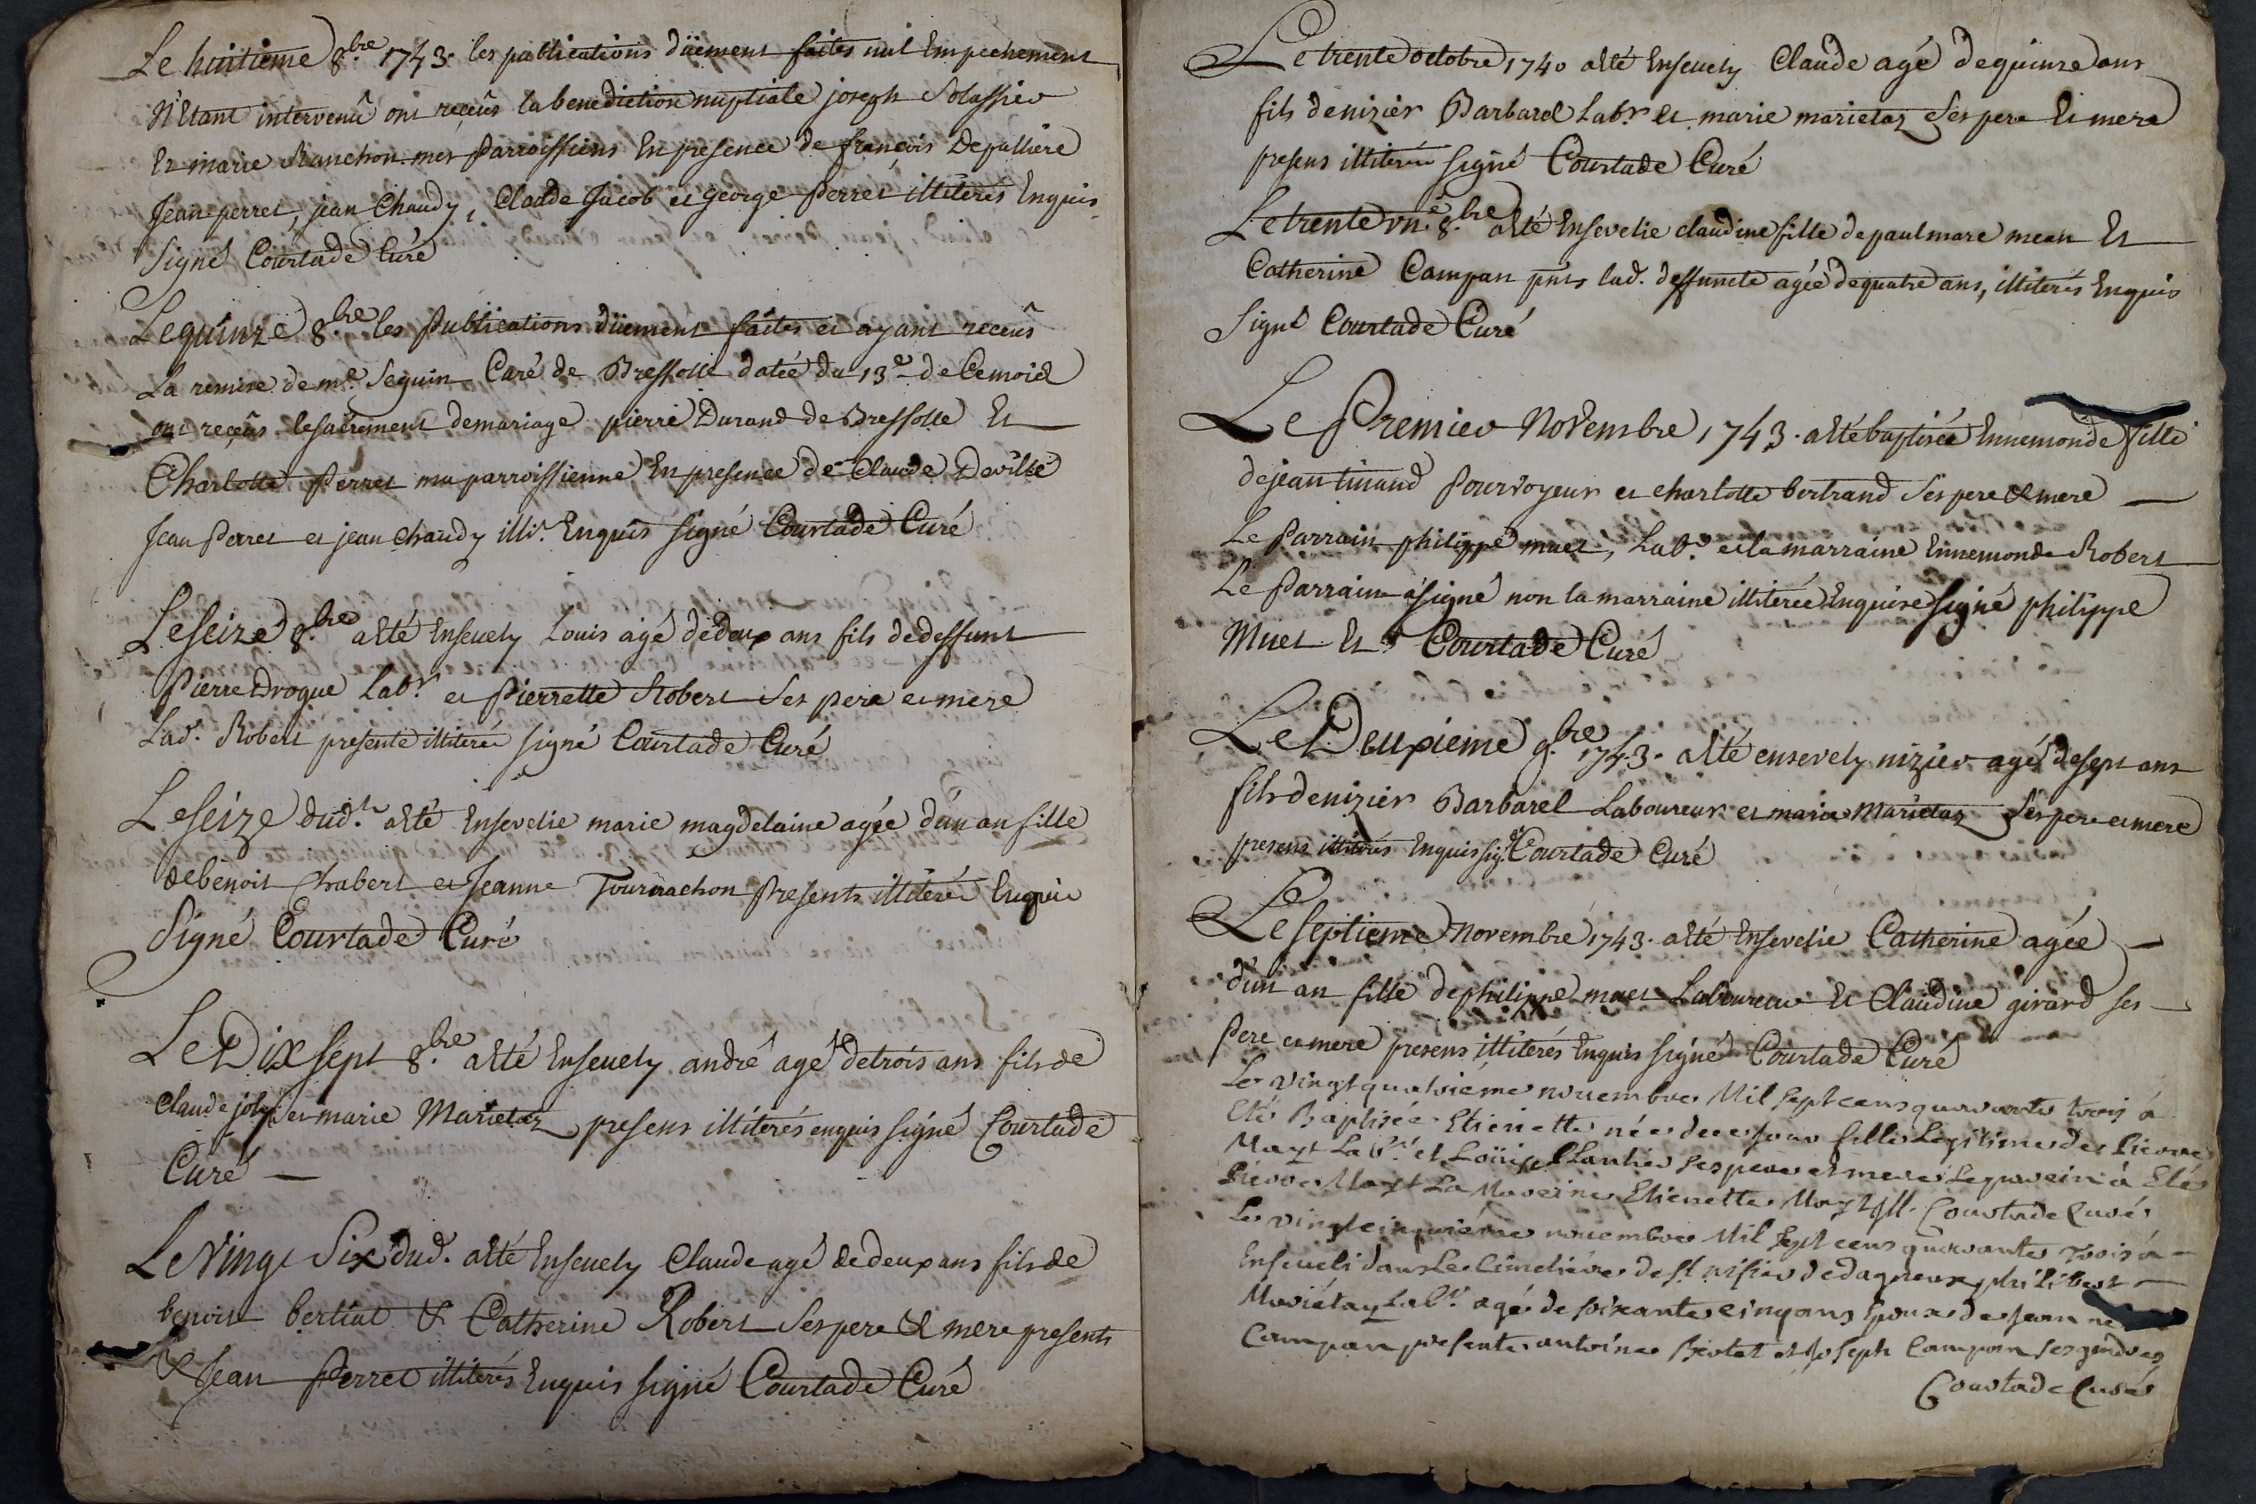 Le huitieme 8.bre 1743. les publications düement faites nul Empechement
N'Etant intervenû ont receûs la benediction nuptiale joseph Solassiev
Et marie Ranchon mes Parroissiens En presence de françois Depalliere
Jean perret, jean Chaudy, Claude Jacob et george Perret illiterés Enquis
Signé Courtade Curé
Le quinze 8.bre les Publications düement faites et ayant receûs
La remise de mre. Seguin Curé de Bressolle datée du 13e de Cemois
ont reçeûs lesacrement demariage pierre Durand de Bressolle Et
Charlotte Perret ma parroissienne En presence de Claude Deville
Jean Perret et jean Chaudy illi.s Enquis signé Courtade Curé
Leseize 8.bre aEté Ensevely Louis agé dedeux ans fils dedeffunt
Pierre Drogue Labr. et Pierrette Robert Ses pere et mere
Lad. Robert presente illiterée signé Courtade Curé
Leseize dud.t aEté Ensevelie marie magdelaine agée d'un an fille
debenoit Chabert et Jeanne Tournachon Presents illiterés Enquis
Signé Courtade Curé
Le Dix sept 8.bre aEté Ensevely andré agé detrois ans fils de
Claude joly et marie Marietaz presens illiterés enquis signé Courtade
Curé
Le Vingt Six dud. aEté Ensevely Claude agé dedeux ans fils de
benoit bertiat & Catherine Robert Ses pere & mere presents
& Jean Perret illiterés Enquis signé Courtade Curé
Le trente octobre 1740 aEté Ensevely Claude agé dequinze ans
fils denizier Barbarel Labr. et marie marietaz Ses pere Et mere
presens illiterés signé Courtade Curé
Le trente vn.e 8.bre aEté Ensevelie claudine fille depaul marc mean Et
Catherine Campan pnts lad. deffuncte agée dequatre ans, illiterés Enquis
Signé Courtade Curé
Le Premier Novembre 1743. aEté baptisée Ennemonde fille
dejean tinand Pourvoyeur et charlotte bertrand Ses pere & mere
Le Parrain philippe muet, Labr. et la marraine Ennemonde Robert
Le Parrain a signé non la marraine illiterée Enquise signé philippe
Muet Et Courtade Curé
Le Deuxieme 9.bre 1743. aEté ensevely nizier agé desept ans
fils denizier Barbarel Laboureur et marie Marietaz Ses pere et mere
presens illiterés Enquis sig.é Courtade Curé
Le septieme Novembre 1743. aEté Ensevelie Catherine agée
d'un an fille dephilippe muet Laboureur Et Claudine girard ses
Pere et mere presens illiterés Enquis signé Courtade Curé
Le vingt quatrième novembre Mil sept cens quarante trois à
Eté Baptisée Etienette née dece jour fille Legitime de Pierre
Mayt Labr. et Loüise Plantier ses pere et mere Le parein à Eté
Pierre Mayt La Mareine Etienette Mayt ill. Courtade Curé
Le vingt cinquième novembre Mil sept cens quarante trois à
Enseveli dans Le Cimetière de St nisier de dagneux philibert
Mariétay Labr. agé de soixante cinq ans Epoux de Jeanne
Campan presents antoine Bertet et Joseph Campan ses gendres
Courtade Curé